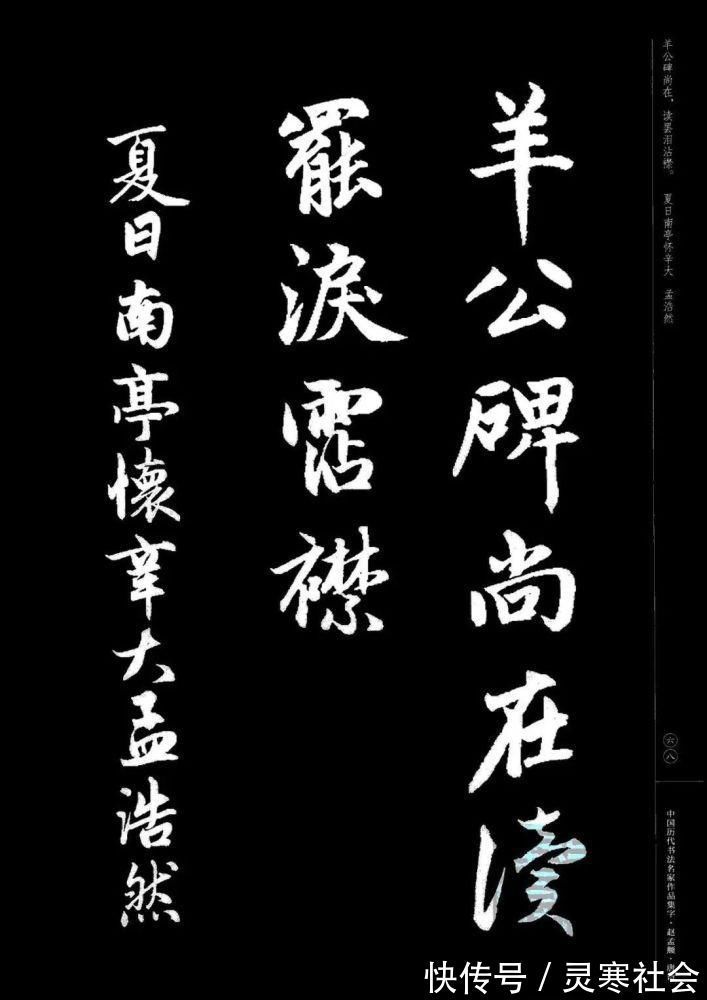 羊公碑尚在读
罷淚霑襟
夏日南亭懷辛大孟浩然
羊公碑尚在，读罢泪沾襟。 夏日南亭怀辛大 孟浩然
六八
中国历代书法名家作品集字·赵孟頫·
快传号／灵寒社会